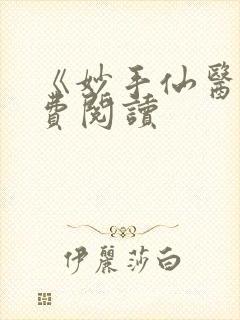 《妙手仙醫
費閱讀
伊麗莎白